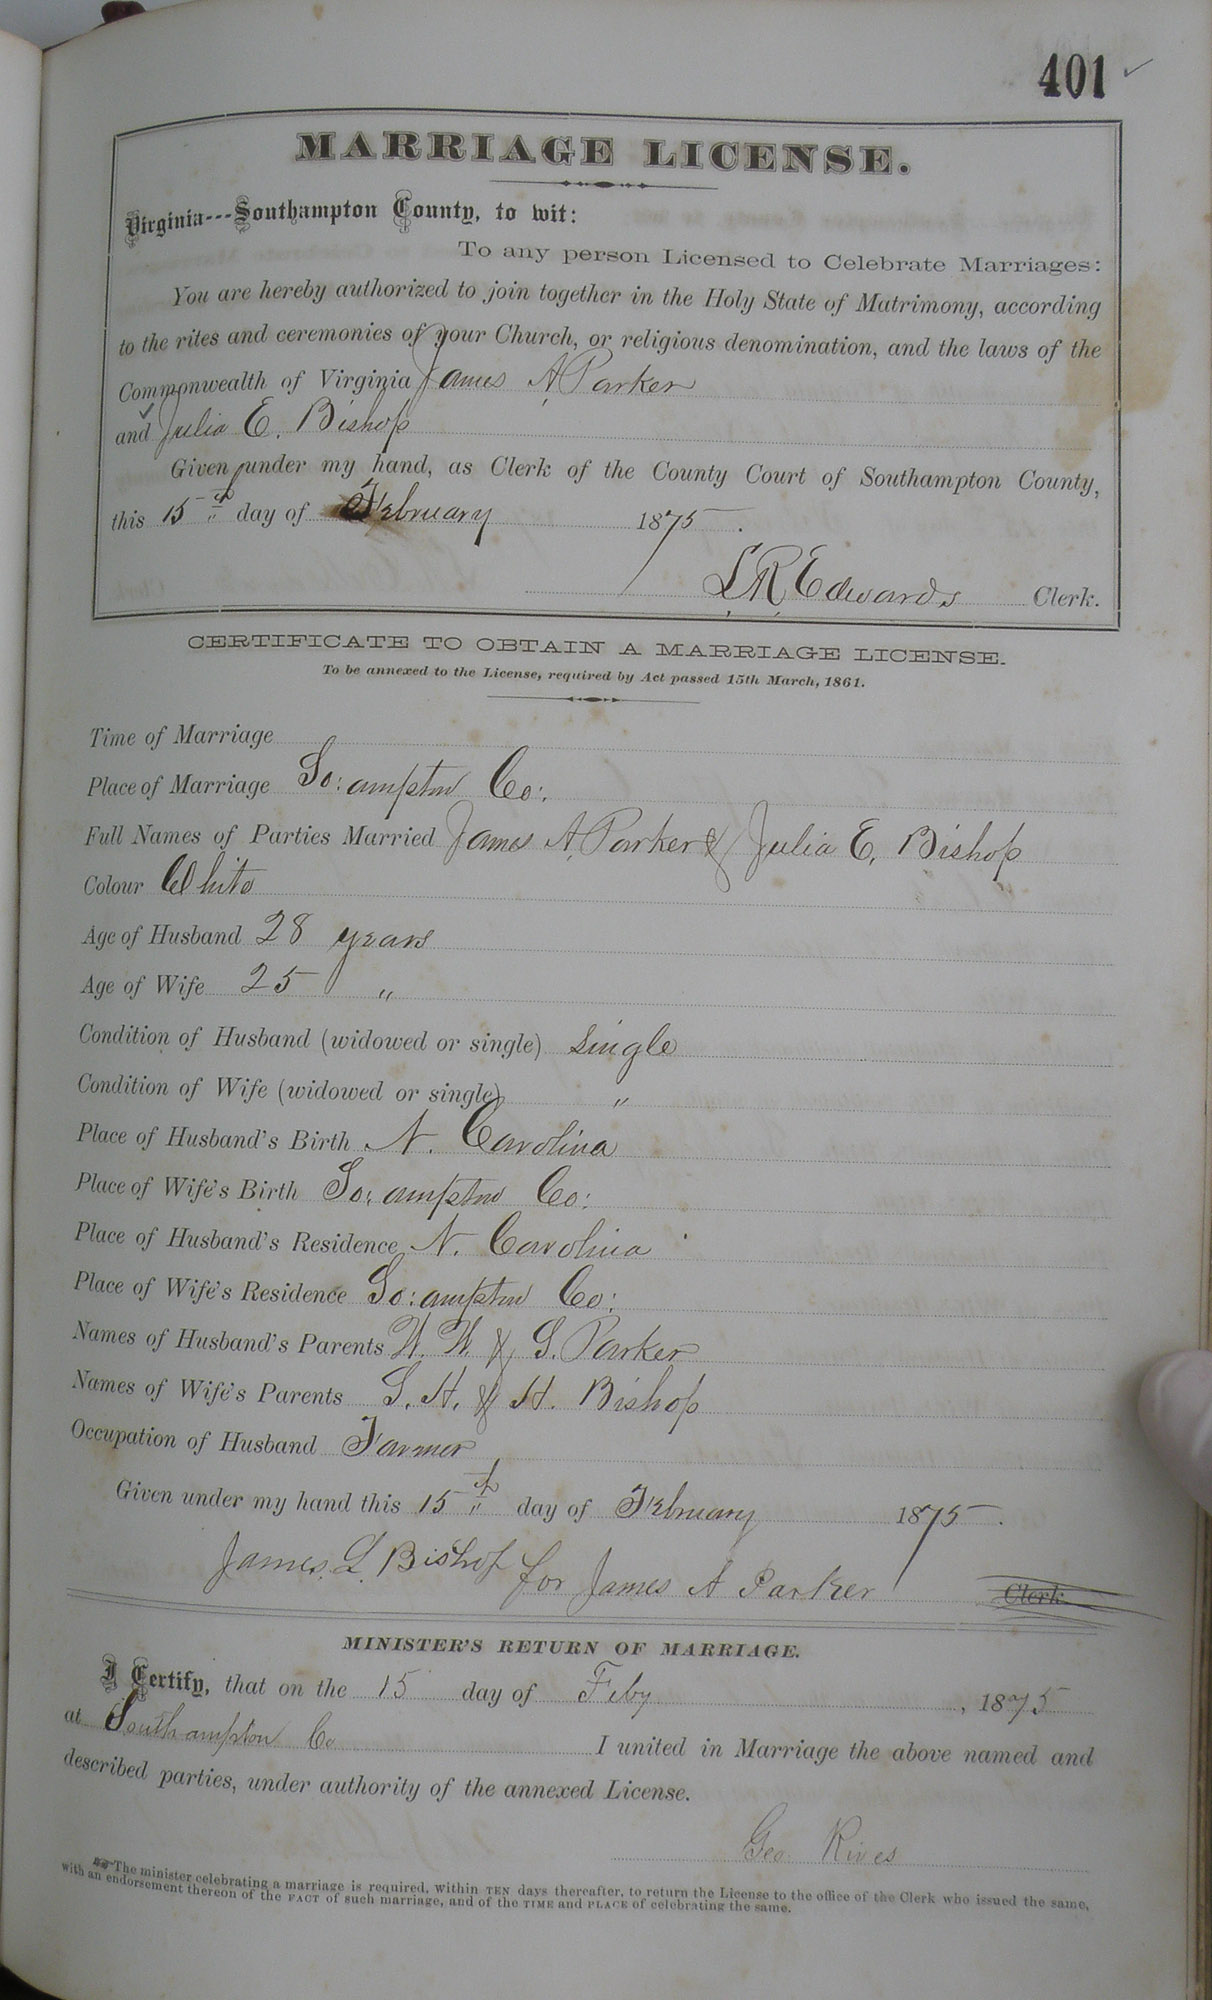 401 ✓
MARRIAGE LICENSE.
Virginia---Southampton County, to wit:
To any person Licensed to Celebrate Marriages:
You are hereby authorized to join together in the Holy State of Matrimony, according
to the rites and ceremonies of your Church, or religious denomination, and the laws of the
Commonwealth of Virginia James A Parker
and Julia E. Bishop
Given under my hand, as Clerk of the County Court of Southampton County,
this 15th day of February 1875.
L R Edwards Clerk.
CERTIFICATE TO OBTAIN A MARRIAGE LICENSE.
To be annexed to the License, required by Act passed 15th March, 1861.
Time of Marriage
Place of Marriage So:ampton Co:.
Full Names of Parties Married James A. Parker & Julia E. Bishop
Colour White
Age of Husband 28 years
Age of Wife 25 "
Condition of Husband (widowed or single) single
Condition of Wife (widowed or single) "
Place of Husband's Birth N. Carolina
Place of Wife's Birth So:ampton Co:
Place of Husband's Residence N. Carolina
Place of Wife's Residence So:ampton Co:
Names of Husband's Parents W. W. & S. Parker
Names of Wife's Parents S. H. & H. Bishop
Occupation of Husband Farmer
Given under my hand this 15th day of February 1875.
James. L. Bishop for James A Parker Clerk.
MINISTER'S RETURN OF MARRIAGE.
I Certify, that on the 15 day of Feby, 1875
at Southampton Co I united in Marriage the above named and
described parties, under authority of the annexed License.
Geo. Rives
The minister celebrating a marriage is required, within TEN days thereafter, to return the License to the office of the Clerk who issued the same,
with an endorsement thereon of the FACT of such marriage, and of the TIME and PLACE of celebrating the same.